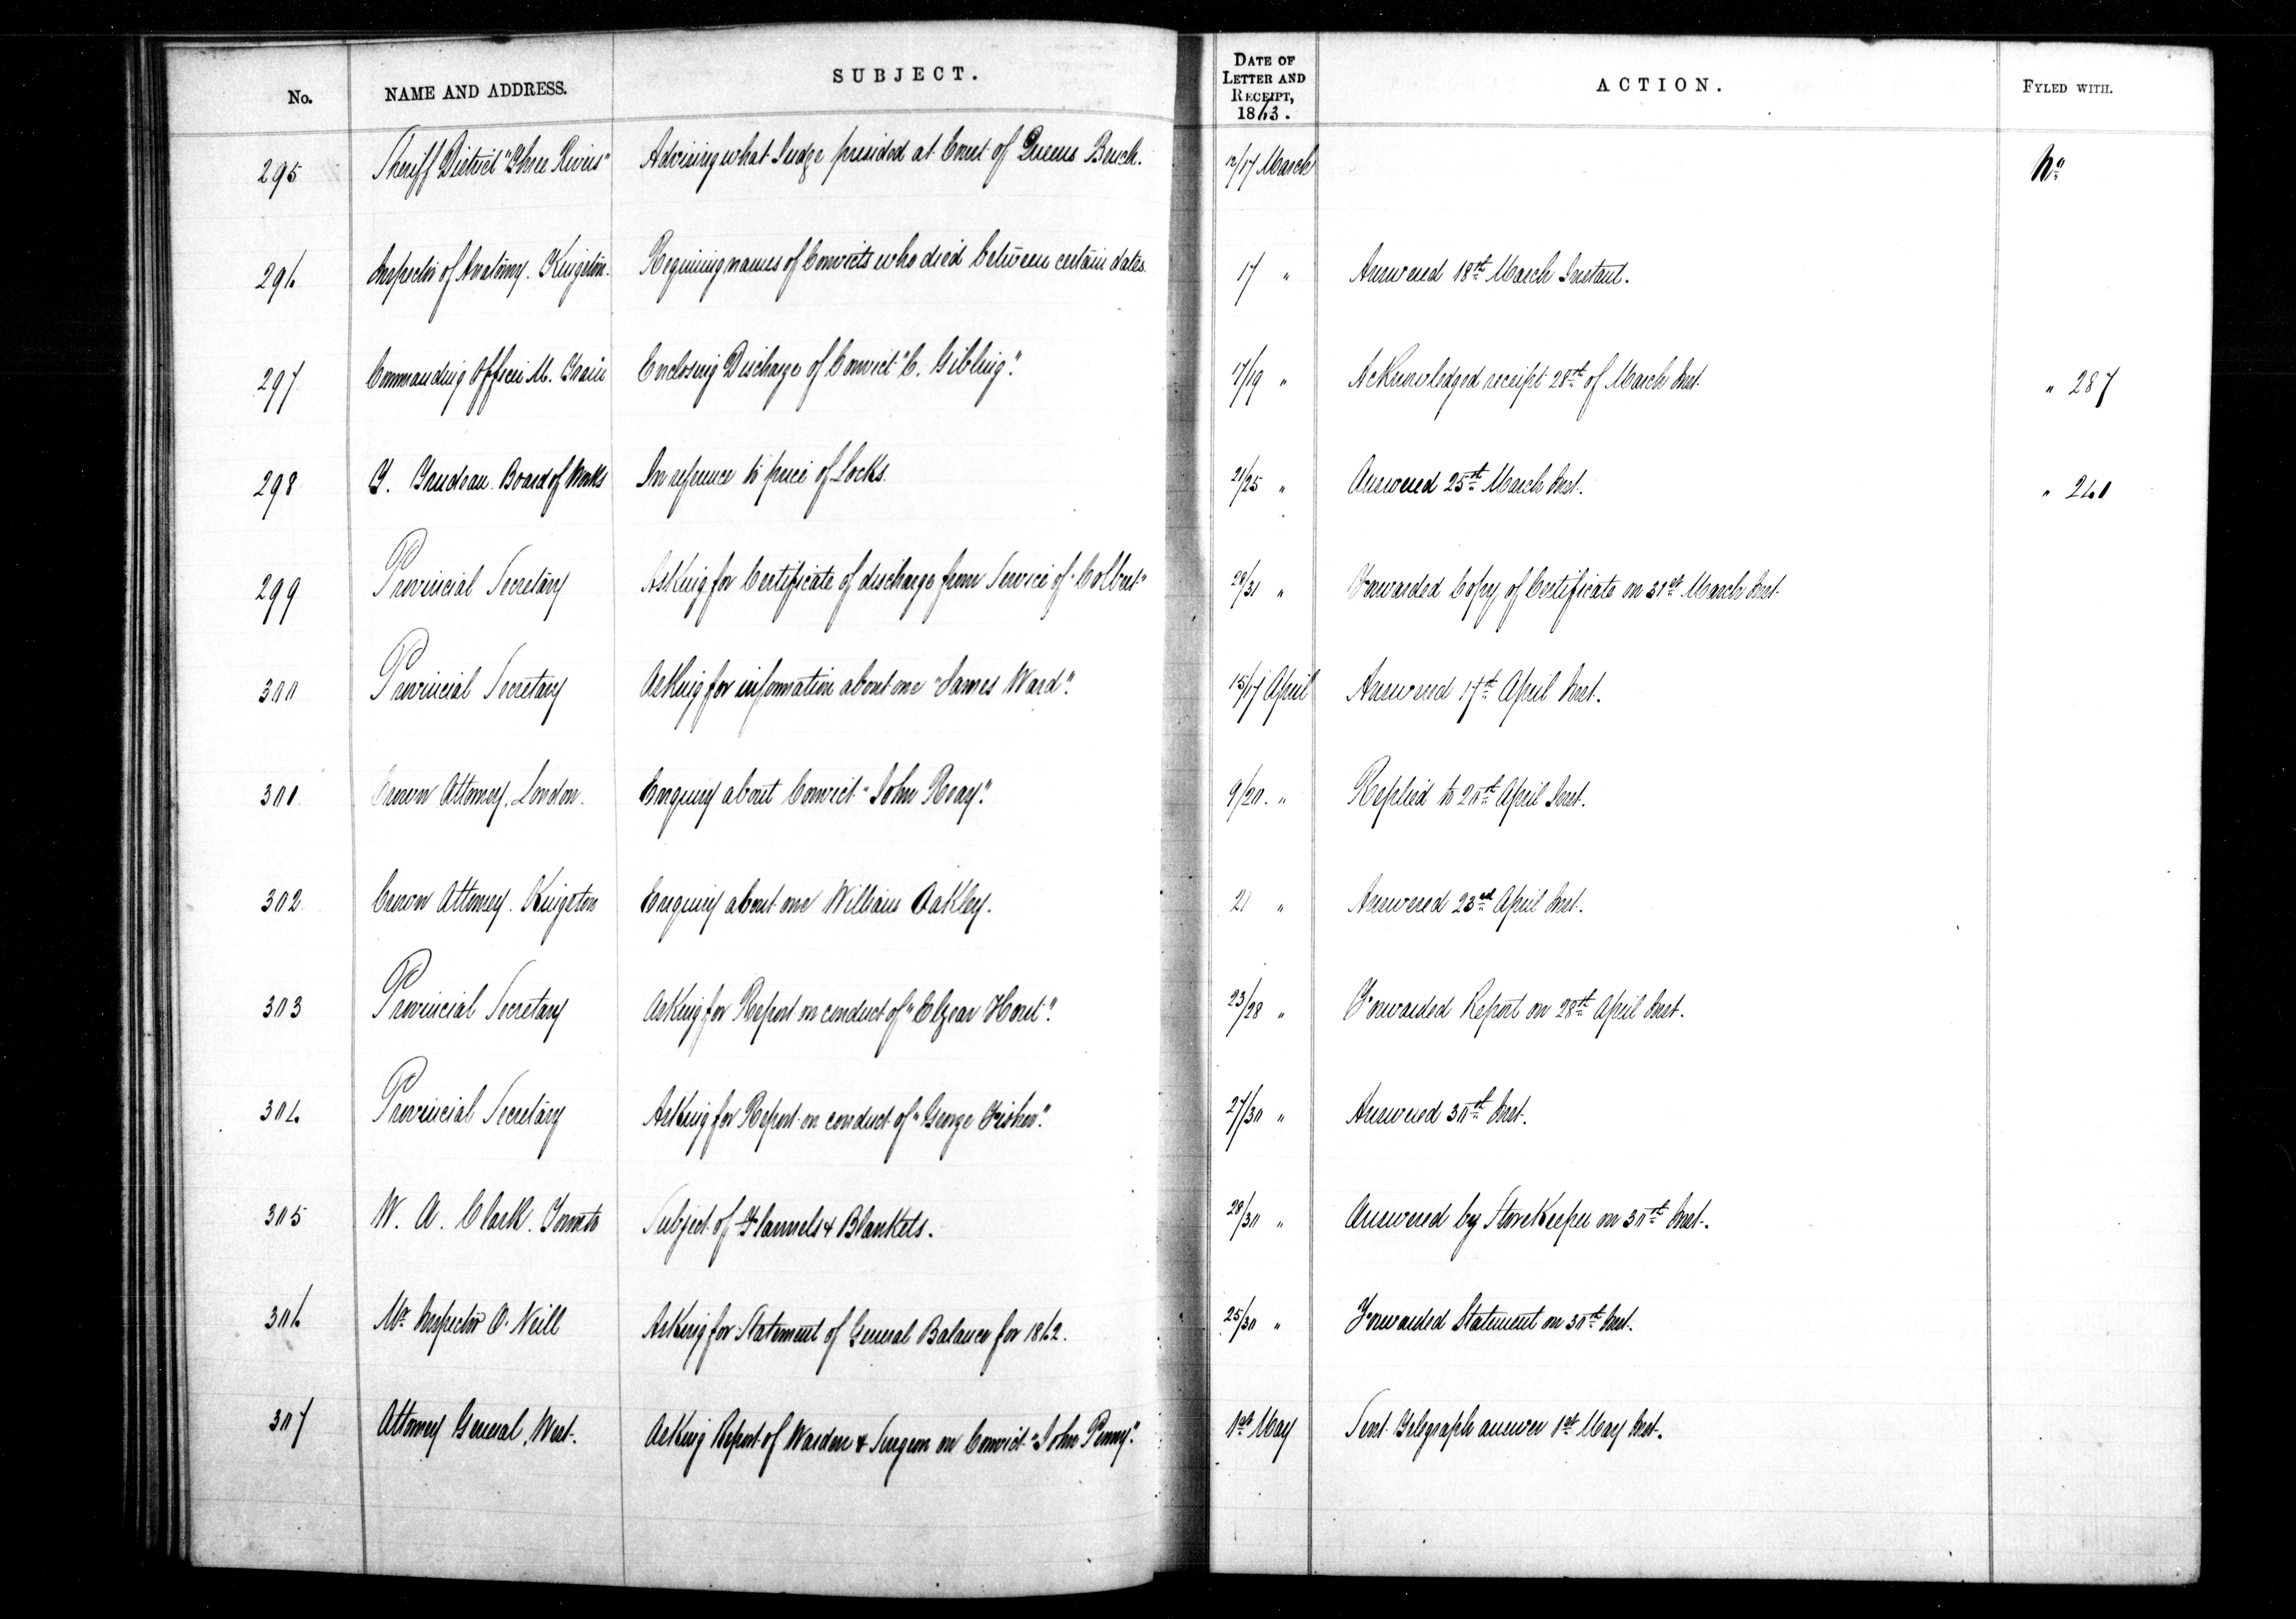 No. NAME AND ADDRESS. SUBJECT. DATE OF LETTER AND RECEIPT, 1863. ACTION. FYLED WITH.
295 Sheriff District "Three Rivers" Advising what Judge presided at Court of Queens Bench. 12/17 March No
296 Inspector of Anatomy. Kingston. Requiring names of Convicts who died between certain dates. 17 " Answered 18th March Instant.
297 Commanding Officer M. Train Enclosing Discharge of Convict "C. Gibling". 17/19 " Acknowledged receipt 28th of March Inst. " 287
298 Y. Trudeau. Board of Works In reference to price of Locks. 21/25 " Answered 25th March Inst. " 260
299 Provincial Secretary Asking for Certificate of discharge from Service of "Colbert" 28/31 " Forwarded Copy of Certificate on 31st March Inst.
300 Provincial Secretary Asking for information about one "James Ward". 15/17 April Answered 17th April Inst.
301 Crown Attorney, London. Enquiry about Convict "John Reay". 9/20. " Replied to 20th April Inst.
302 Crown Attorney. Kingston Enquiry about one William Oakley. 21 " Answered 23rd April Inst.
303 Provincial Secretary Asking for Report on conduct of "Elzear Hout". 23/28 " Forwarded Report on 28th April Inst.
304 Provincial Secretary Asking for Report on conduct of "George Fisher". 27/30 " Answered 30th Inst.
305 W. A. Clark. Toronto Subject of Flannels & Blankets. 28/30 " Answered by StoreKeeper on 30th Inst.
306 Mr. Inspector O. Neill Asking for Statement of General Balance for 1862. 25/30 " Forwarded Statement on 30th Inst.
307 Attorney General, West. Asking Report of Warden & Surgeon on Convict "John Penny". 1st May Sent Telegraph answer 1st May Inst.